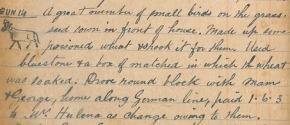 SUN 14 A great number of small birds on the grass
seed sown in front of house. Made up some
poisoned wheat & shook it for them. Used
bluestone & a box of matches in which the wheat
was soaked. Drove round block with Mam
& George, home along German line, paid 1-6-3
to Mr Hulena as change owing to them.